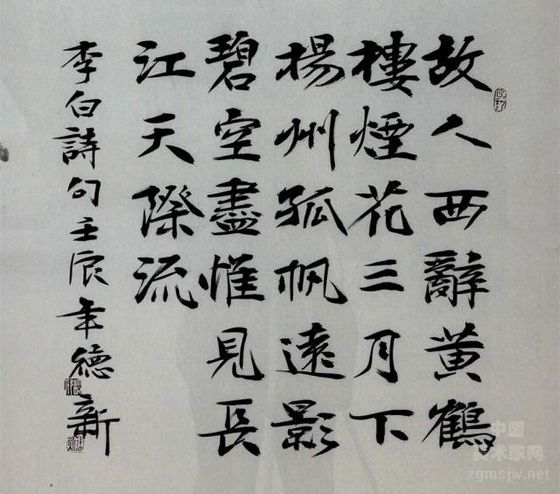 故人西辭黃鶴
樓煙花三月下
楊州孤帆遠影
碧空盡惟見長
江天際流
李白詩句壬辰年德新
中国
美术家网
zgmsjw.net